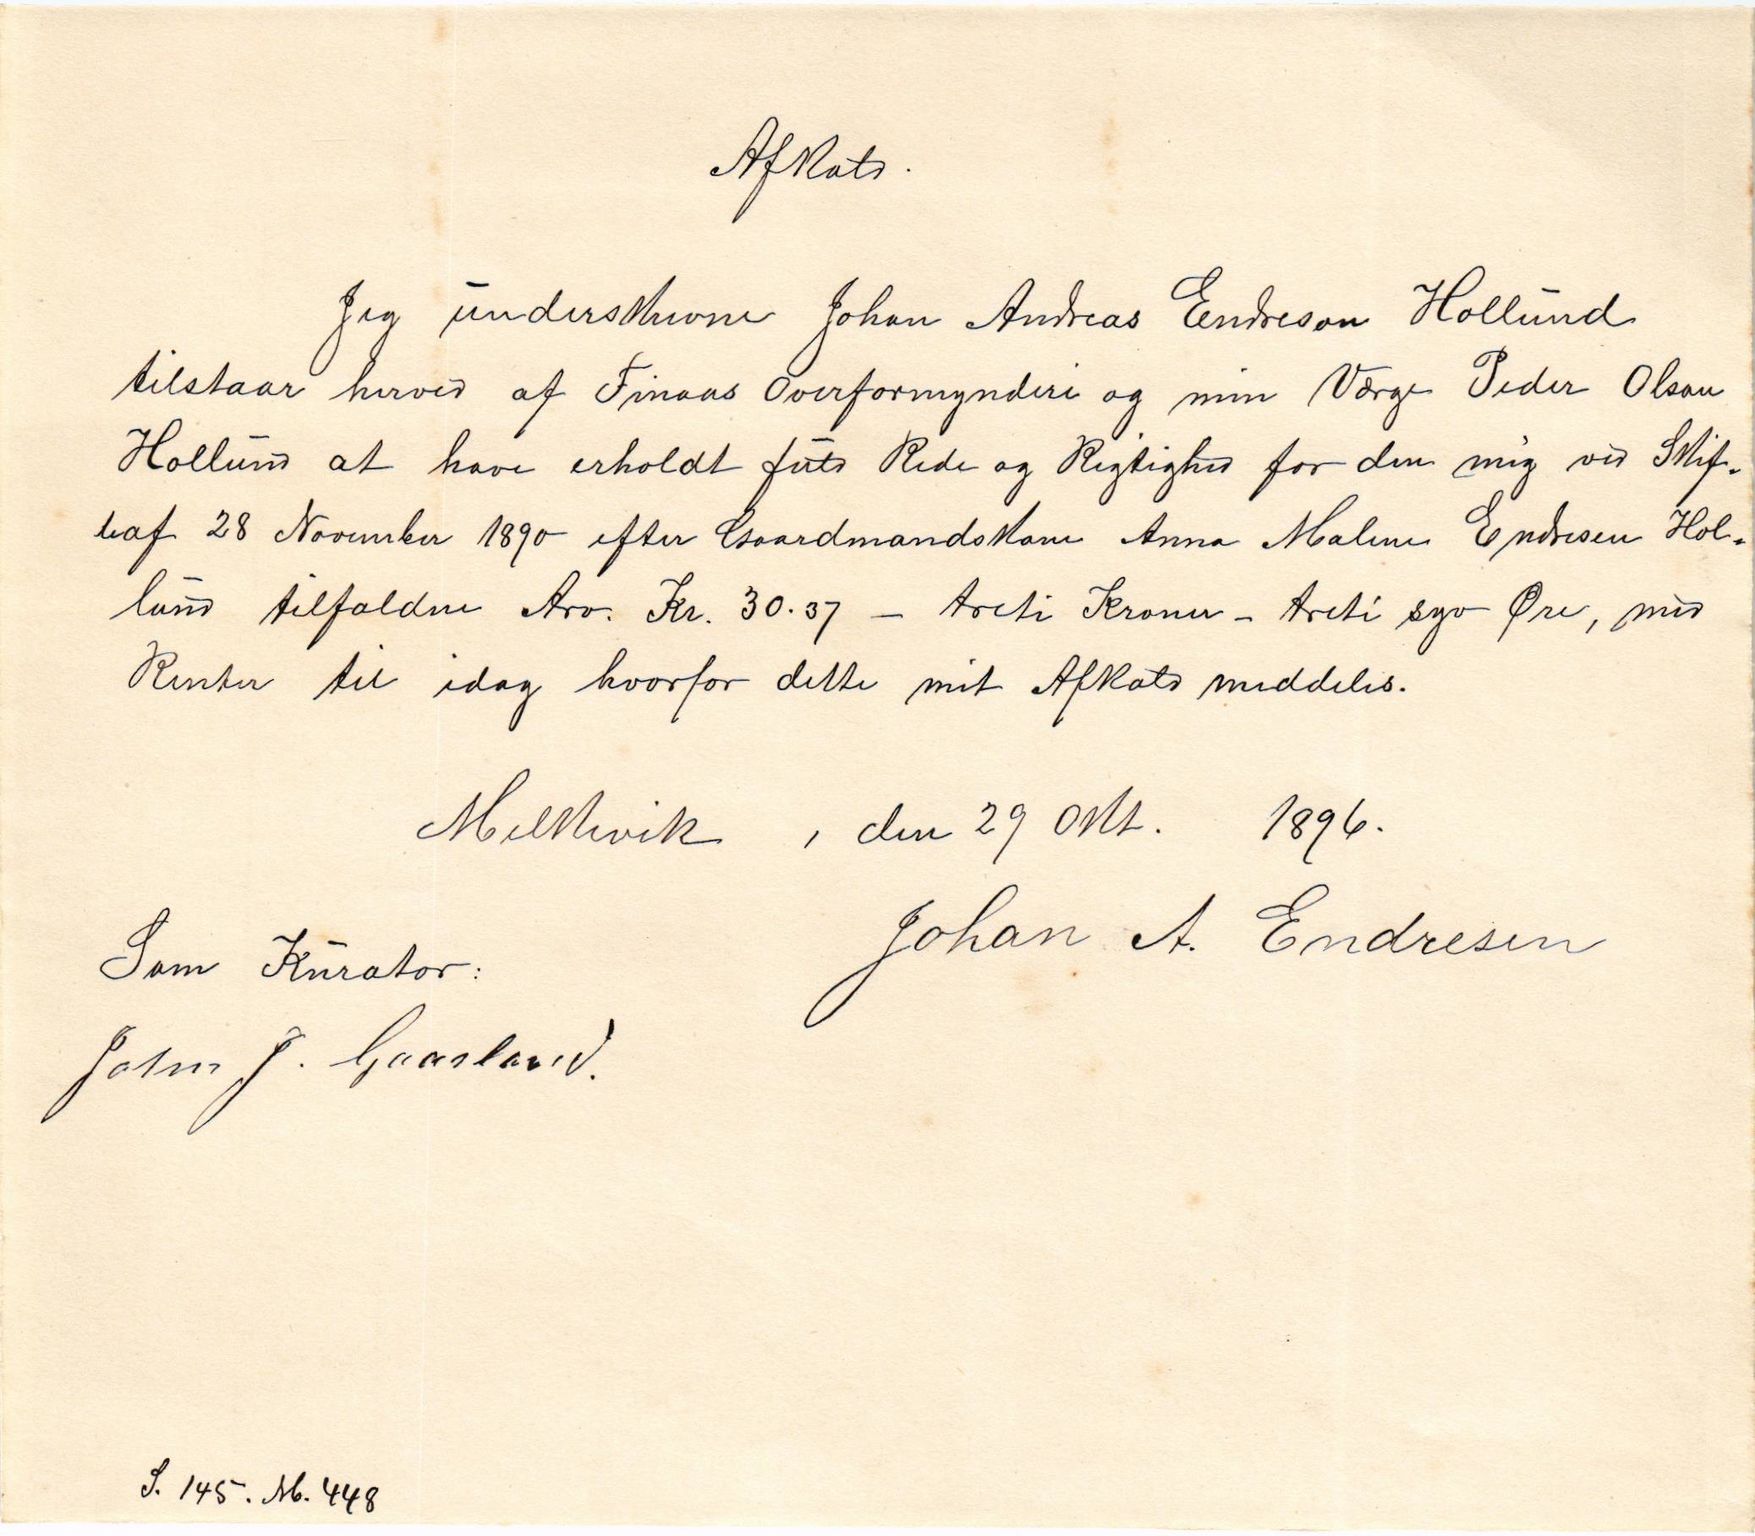 Afkald.
Jeg underskrevne Johan Andreas Endreson Hollund
tilstaar herved af Finaas Overformynderi og min Værge Peder Olson
Hollund at have erholdt fuld Rede og Rigtighed for den mig ved Skif-
te af 28 November 1890 efter Gaardmandskone Anna Malene Endresen Hol-
lund tilfaldne Arv. Kr. 30.37 – treti Kroner – treti syv Øre, med
Renter til idag hvorfor dette mit Afkald meddeles.
Melkevik , den 29 Okt. 1896.
Johan A. Endresen
Som Kurator:
John J. Gaasland.
S. 145. N. 448